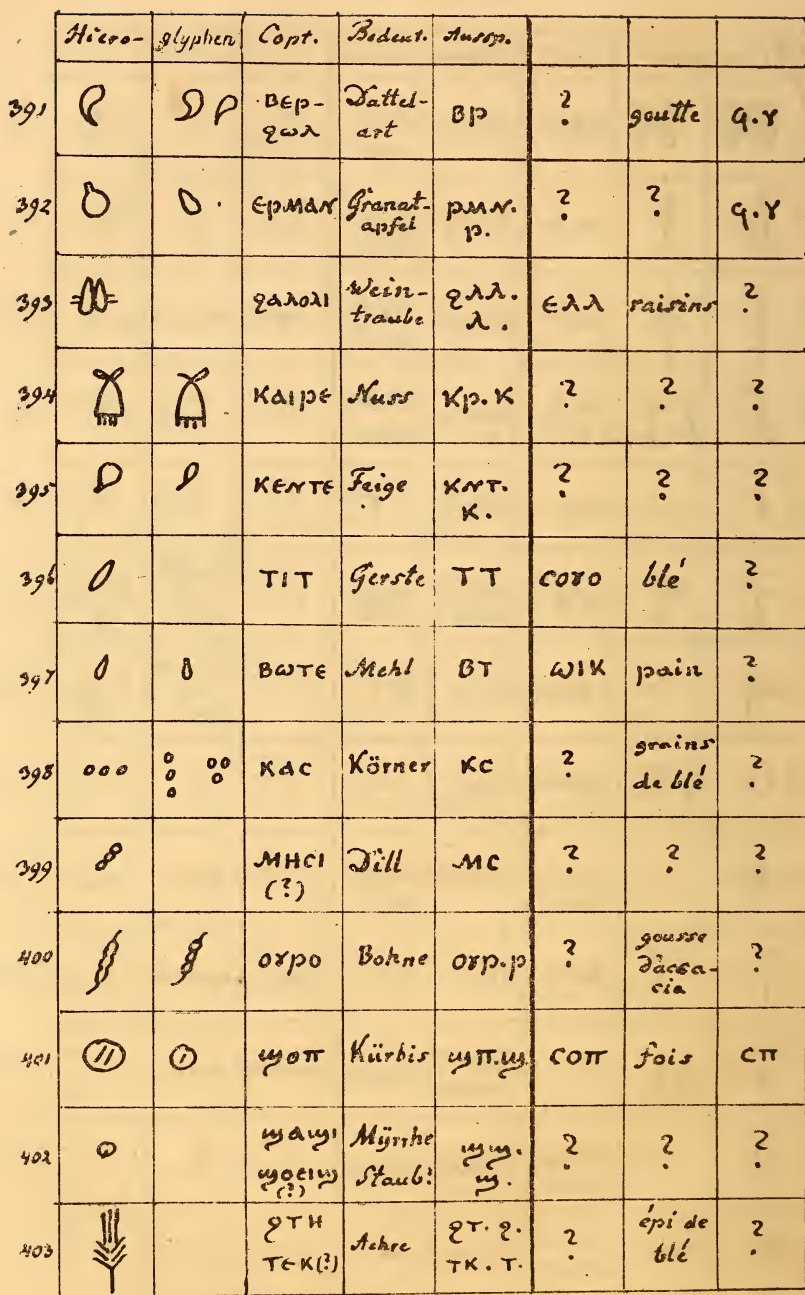 Hiero- glyphen Copt. Bedeut. Aussp.
391 ⲃⲉⲣ- ϩⲱⲗ Dattel- art ⲃⲣ ? goutte ϥ.ⲩ
392 ⲉⲣⲙⲁⲛ Granat- apfel ⲣⲙⲛ. ⲣ. ? ? ϥ.ⲩ
393 ϩⲁⲗⲟⲗⲓ Wein- traube ϩⲗⲗ. ⲗ. ⲉⲗⲗ raisins ?
394 ⲕⲁⲓⲣⲉ Nuss ⲕⲣ.ⲕ ? ? ?
395 ⲕⲉⲛⲧⲉ Feige ⲕⲛⲧ. ⲕ. ? ? ?
396 ⲧⲓⲧ Gerste ⲧⲧ ⲥⲟⲩⲟ blé ?
397 ⲃⲱⲧⲉ Mehl ⲃⲧ ⲱⲓⲕ pain ?
398 ⲕⲁⲥ Körner ⲕⲥ ? grains de blé ?
399 ⲙⲏⲥⲓ (?) Dill ⲙⲥ ? ? ?
400 ⲟⲩⲣⲟ Bohne ⲟⲩⲣ.ⲣ ? gousse d'acca- cia ?
401 ϣⲟⲡ Kürbis ϣⲡ.ϣ ⲥⲟⲡ fois ⲥⲡ
402 ϣⲁϣⲓ ϣⲟⲉⲓϣ (?) Myrrhe Staub? ϣϣ. ϣ. ? ? ?
403 ϩⲧⲏ ⲧⲉⲕ(?) Aehre ϩⲧ.ϩ. ⲧⲕ.ⲧ. ? épi de blé ?